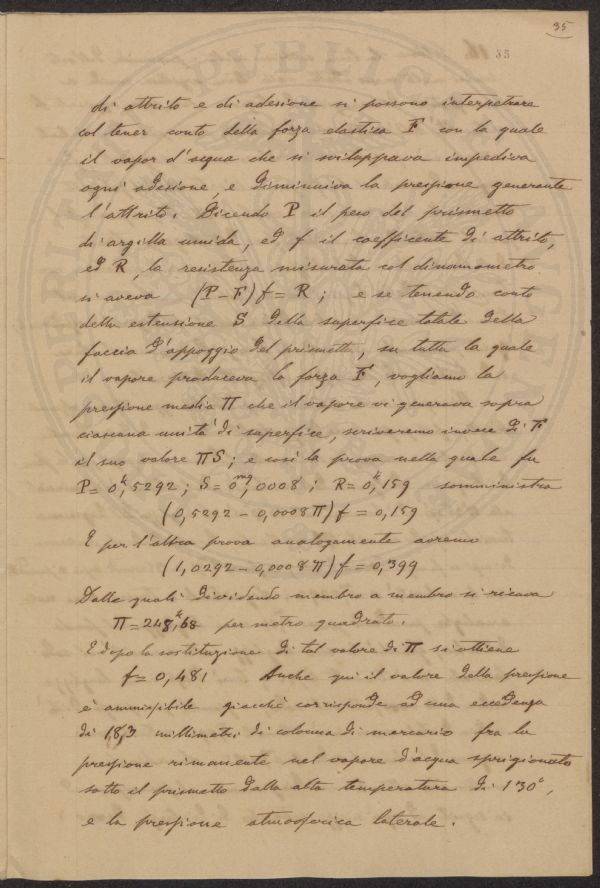 35
35
di attrito e di adesione si possono interpetrare
col tener conto della forza elastica F con la quale
il vapor d'acqua che si sviluppava impediva
ogni adesione, e diminuiva la pressione generante
l'attrito. Dicendo P il peso del prismetto
di argilla umida, ed f il coefficente di attrito,
ed R, la resistenza misurata col dinamometro
si aveva (P-F)f = R; e se tenendo conto
della estensione S della superfice totale della
faccia d'appoggio del prismetto, su tutta la quale
il vapore produceva la forza F, vogliamo la
pressione media Π che il vapore vi generava sopra
ciascuna unità di superfice, scriveremo invece di F
il suo valore ΠS; e così la prova nella quale fu
P=0,ᵏ5292; S=0,ᵐq0008; R=0,ᵏ159 somministra
(0,5292-0,0008Π)f=0,159
E per l'altra prova analogamente avremo
(1,0292-0,0008Π)f=0,399
Dalle quali dividendo membro a membro si ricava
Π=248,ᵏ68 per metro quadrato.
E dopo la sostituzione di tal valore di Π si ottiene
f=0,481 Anche qui il valore della pressione
è ammissibile giacchè corrisponde ad una eccedenza
di 18,3 millimetri di colonna di mercurio fra la
pressione rimanente nel vapore d'acqua sprigionato
sotto il prismetto dalla alta temperatura di 130°,
e la pressione atmosferica laterale.